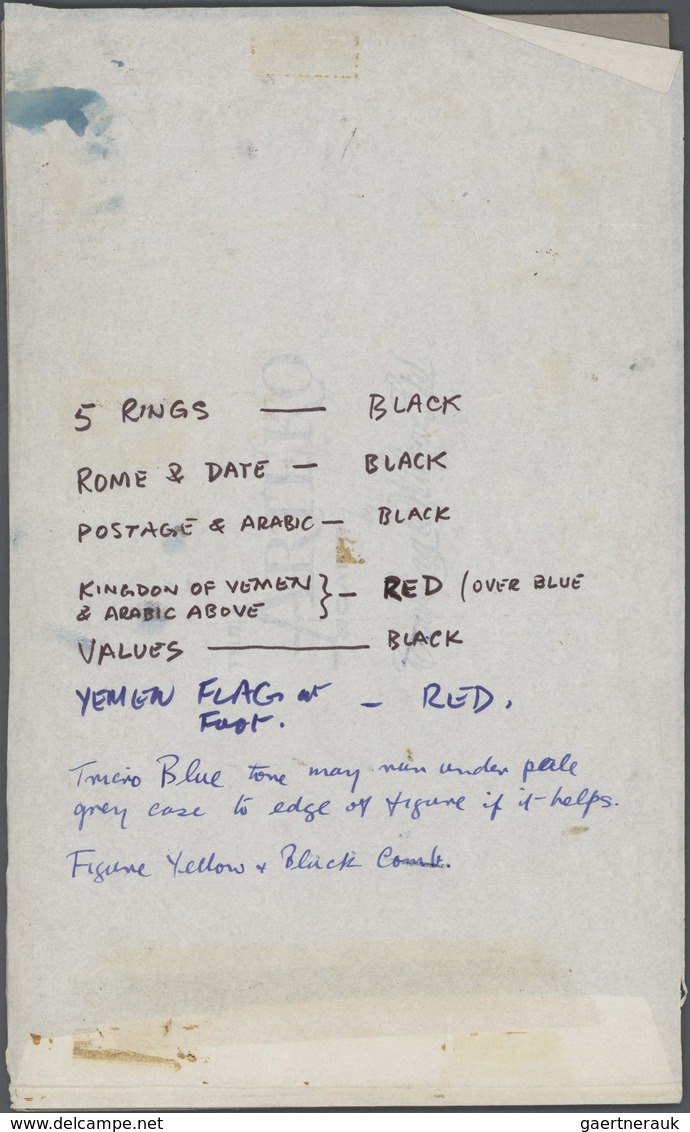 5 RINGS — BLACK
ROME & DATE — BLACK
POSTAGE & ARABIC — BLACK
KINGDON OF YEMEN } — RED (OVER BLUE
& ARABIC ABOVE
VALUES — BLACK
YEMEN FLAG at — RED.
Foot.
Blue tone may run under pale
grey case to edge of figure if it helps.
Figure Yellow + Black Comb.
www.delcampe.net
gaertnerauk